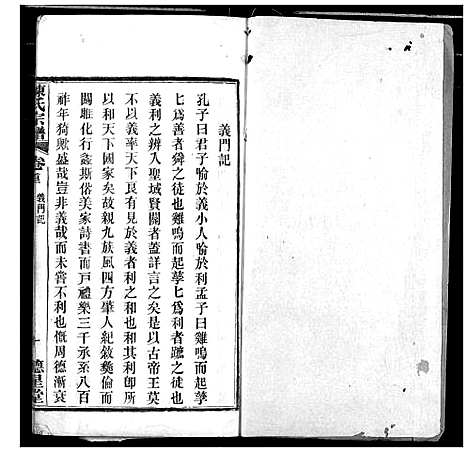 義門記
孔子曰君子喻於義小人喻於利孟子曰雞鳴而起孳
孳爲善者舜之徒也雞鳴而起孳孳爲利者蹠之徒也
義利之辨入聖域賢關者蓋詳言之矣是以古帝王莫
不以義率天下良有見於義者利之和也其利即所
以和天下國家矣故親九族風四方肇人紀敘彝倫而
關雎化行螽斯俗美家詩書而戶禮樂三千承系八百
祚年猗歟盛哉豈非義哉而未嘗不利也慨周德漸衰
陳氏宗譜
卷首
義門記
一
德星堂